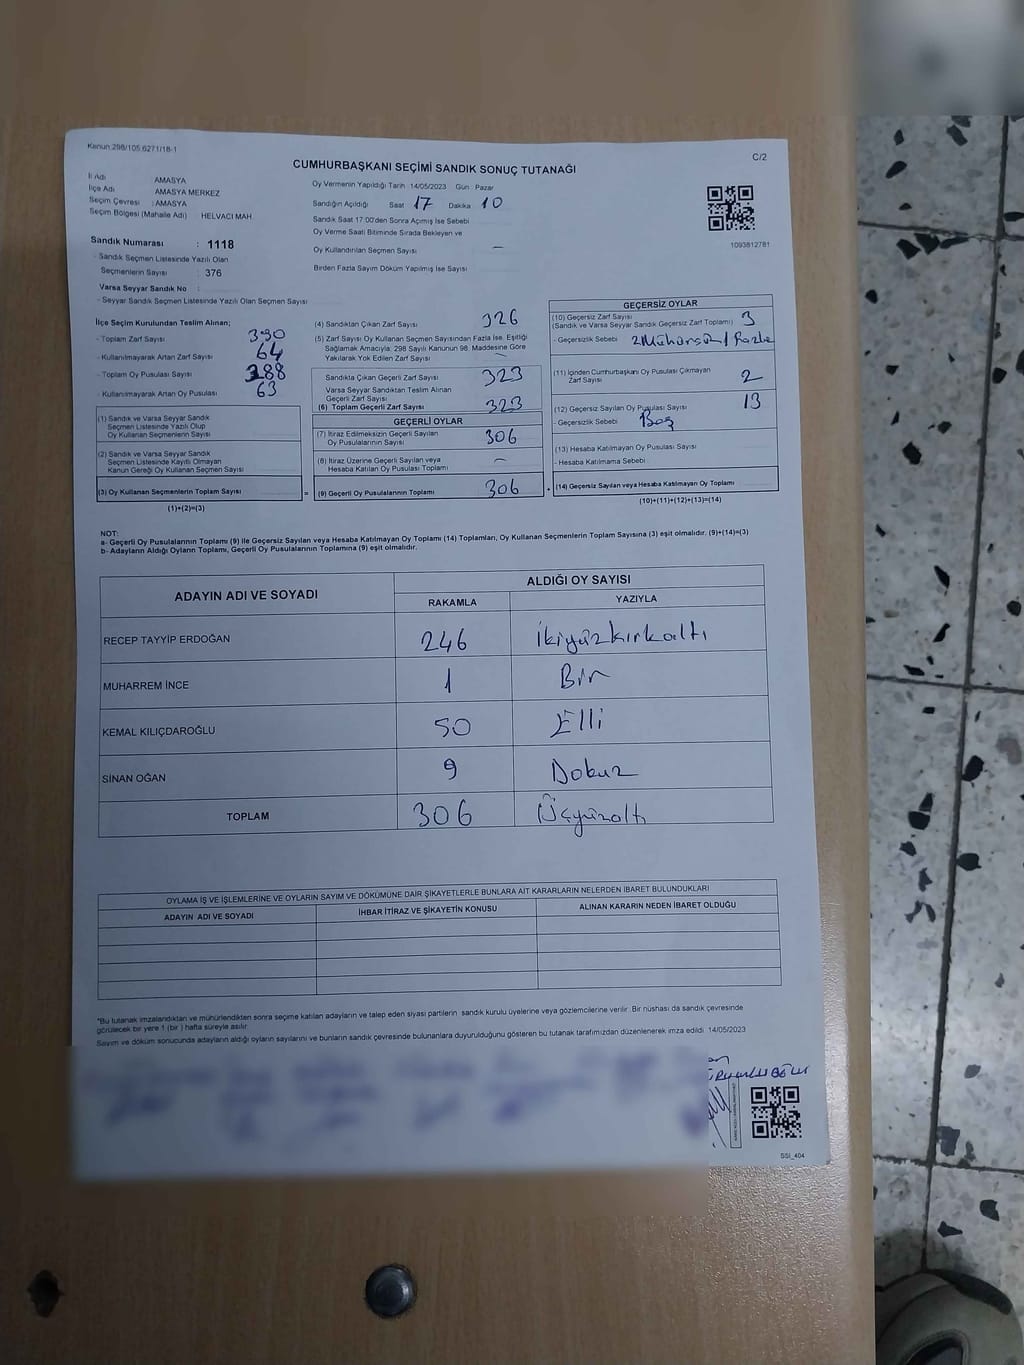 Kanun:298/105,6271/18-1
CUMHURBAŞKANI SEÇİMİ SANDIK SONUÇ TUTANAĞI
C/2
İl Adı AMASYA
İlçe Adı AMASYA MERKEZ
Seçim Çevresi : AMASYA
Seçim Bölgesi (Mahalle Adı) HELVACI MAH.
Sandık Numarası : 1118
- Sandık Seçmen Listesinde Yazılı Olan
Seçmenlerin Sayısı : 376
Varsa Seyyar Sandık No :
- Seyyar Sandık Seçmen Listesinde Yazılı Olan Seçmen Sayısı
Oy Vermenin Yapıldığı Tarih 14/05/2023 Gün : Pazar
Sandığın Açıldığı Saat 17 Dakika 10
Sandık Saat 17:00'den Sonra Açımış İse Sebebi
Oy Verme Saati Bitiminde Sırada Bekleyen ve
Oy Kullandırılan Seçmen Sayısı –
Birden Fazla Sayım Döküm Yapılmış İse Sayısı
1093812781
İlçe Seçim Kurulundan Teslim Alınan;
- Toplam Zarf Sayısı 390
- Kullanılmayarak Artan Zarf Sayısı 64
- Toplam Oy Pusulası Sayısı 388
- Kullanılmayarak Artan Oy Pusulası 63
(1) Sandık ve Varsa Seyyar Sandık
Seçmen Listesinde Yazılı Olup
Oy Kullanan Seçmenlerin Sayısı
(2) Sandık ve Varsa Seyyar Sandık
Seçmen Listesinde Kayıtlı Olmayan
Kanun Gereği Oy Kullanan Seçmen Sayısı
(3) Oy Kullanan Seçmenlerin Toplam Sayısı =
(1)+(2)=(3)
(4) Sandıktan Çıkan Zarf Sayısı 326
(5) Zarf Sayısı Oy Kullanan Seçmen Sayısından Fazla İse, Eşitliği
Sağlamak Amacıyla; 298 Sayılı Kanunun 98. Maddesine Göre
Yakılarak Yok Edilen Zarf Sayısı –
Sandıkta Çıkan Geçerli Zarf Sayısı 323
Varsa Seyyar Sandıktan Teslim Alınan
Geçerli Zarf Sayısı
(6) Toplam Geçerli Zarf Sayısı 323
GEÇERLİ OYLAR
(7) İtiraz Edilmeksizin Geçerli Sayılan
Oy Pusulalarının Sayısı 306
(8) İtiraz Üzerine Geçerli Sayılan veya
Hesaba Katılan Oy Pusulası Toplamı –
(9) Geçerli Oy Pusulalarının Toplamı 306 +
GEÇERSİZ OYLAR
(10) Geçersiz Zarf Sayısı 3
(Sandık ve Varsa Seyyar Sandık Geçersiz Zarf Toplamı)
- Geçersizlik Sebebi 2 Mühürsüz 1 Fazla
(11) İçinden Cumhurbaşkanı Oy Pusulası Çıkmayan
Zarf Sayısı 2
(12) Geçersiz Sayılan Oy Pusulası Sayısı 13
- Geçersizlik Sebebi Boş
(13) Hesaba Katılmayan Oy Pusulası Sayısı
- Hesaba Katılmama Sebebi
(14) Geçersiz Sayılan veya Hesaba Katılmayan Oy Toplamı
(10)+(11)+(12)+(13)=(14)
NOT:
a- Geçerli Oy Pusulalarının Toplamı (9) ile Geçersiz Sayılan veya Hesaba Katılmayan Oy Toplamı (14) Toplamları, Oy Kullanan Seçmenlerin Toplam Sayısına (3) eşit olmalıdır. (9)+(14)=(3)
b- Adayların Aldığı Oyların Toplamı, Geçerli Oy Pusulalarının Toplamına (9) eşit olmalıdır.
ADAYIN ADI VE SOYADI ALDIĞI OY SAYISI
RAKAMLA YAZIYLA
RECEP TAYYİP ERDOĞAN 246 İkiyüzkırkaltı
MUHARREM İNCE 1 Bir
KEMAL KILIÇDAROĞLU 50 Elli
SİNAN OĞAN 9 Dokuz
TOPLAM 306 Üçyüzaltı
OYLAMA İŞ VE İŞLEMLERİNE VE OYLARIN SAYIM VE DÖKÜMÜNE DAİR ŞİKAYETLERLE BUNLARA AİT KARARLARIN NELERDEN İBARET BULUNDUKLARI
ADAYIN ADI VE SOYADI İHBAR İTİRAZ VE ŞİKAYETİN KONUSU ALINAN KARARIN NEDEN İBARET OLDUĞU
*Bu tutanak imzalandıktan ve mühürlendikten sonra seçime katılan adayların ve talep eden siyasi partilerin sandık kurulu üyelerine veya gözlemcilerine verilir. Bir nüshası da sandık çevresinde
görülecek bir yere 1 (bir ) hafta süreyle asılır.
Sayım ve döküm sonucunda adayların aldığı oyların sayılarını ve bunların sandık çevresinde bulunanlara duyurulduğunu gösteren bu tutanak tarafımızdan düzenlenerek imza edildi. 14/05/2023
SSI_404